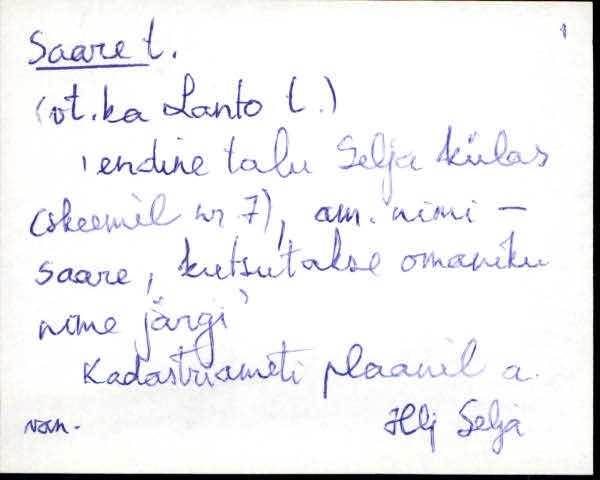 Saare t.
(vt. ka Lanto t.)
' endine talu Selja külas
(skeemil nr 7), am. nimi –
saare, kutsutakse omaniku
nime järgi '
Kadastriameti plaanil a.
Hlj Selja